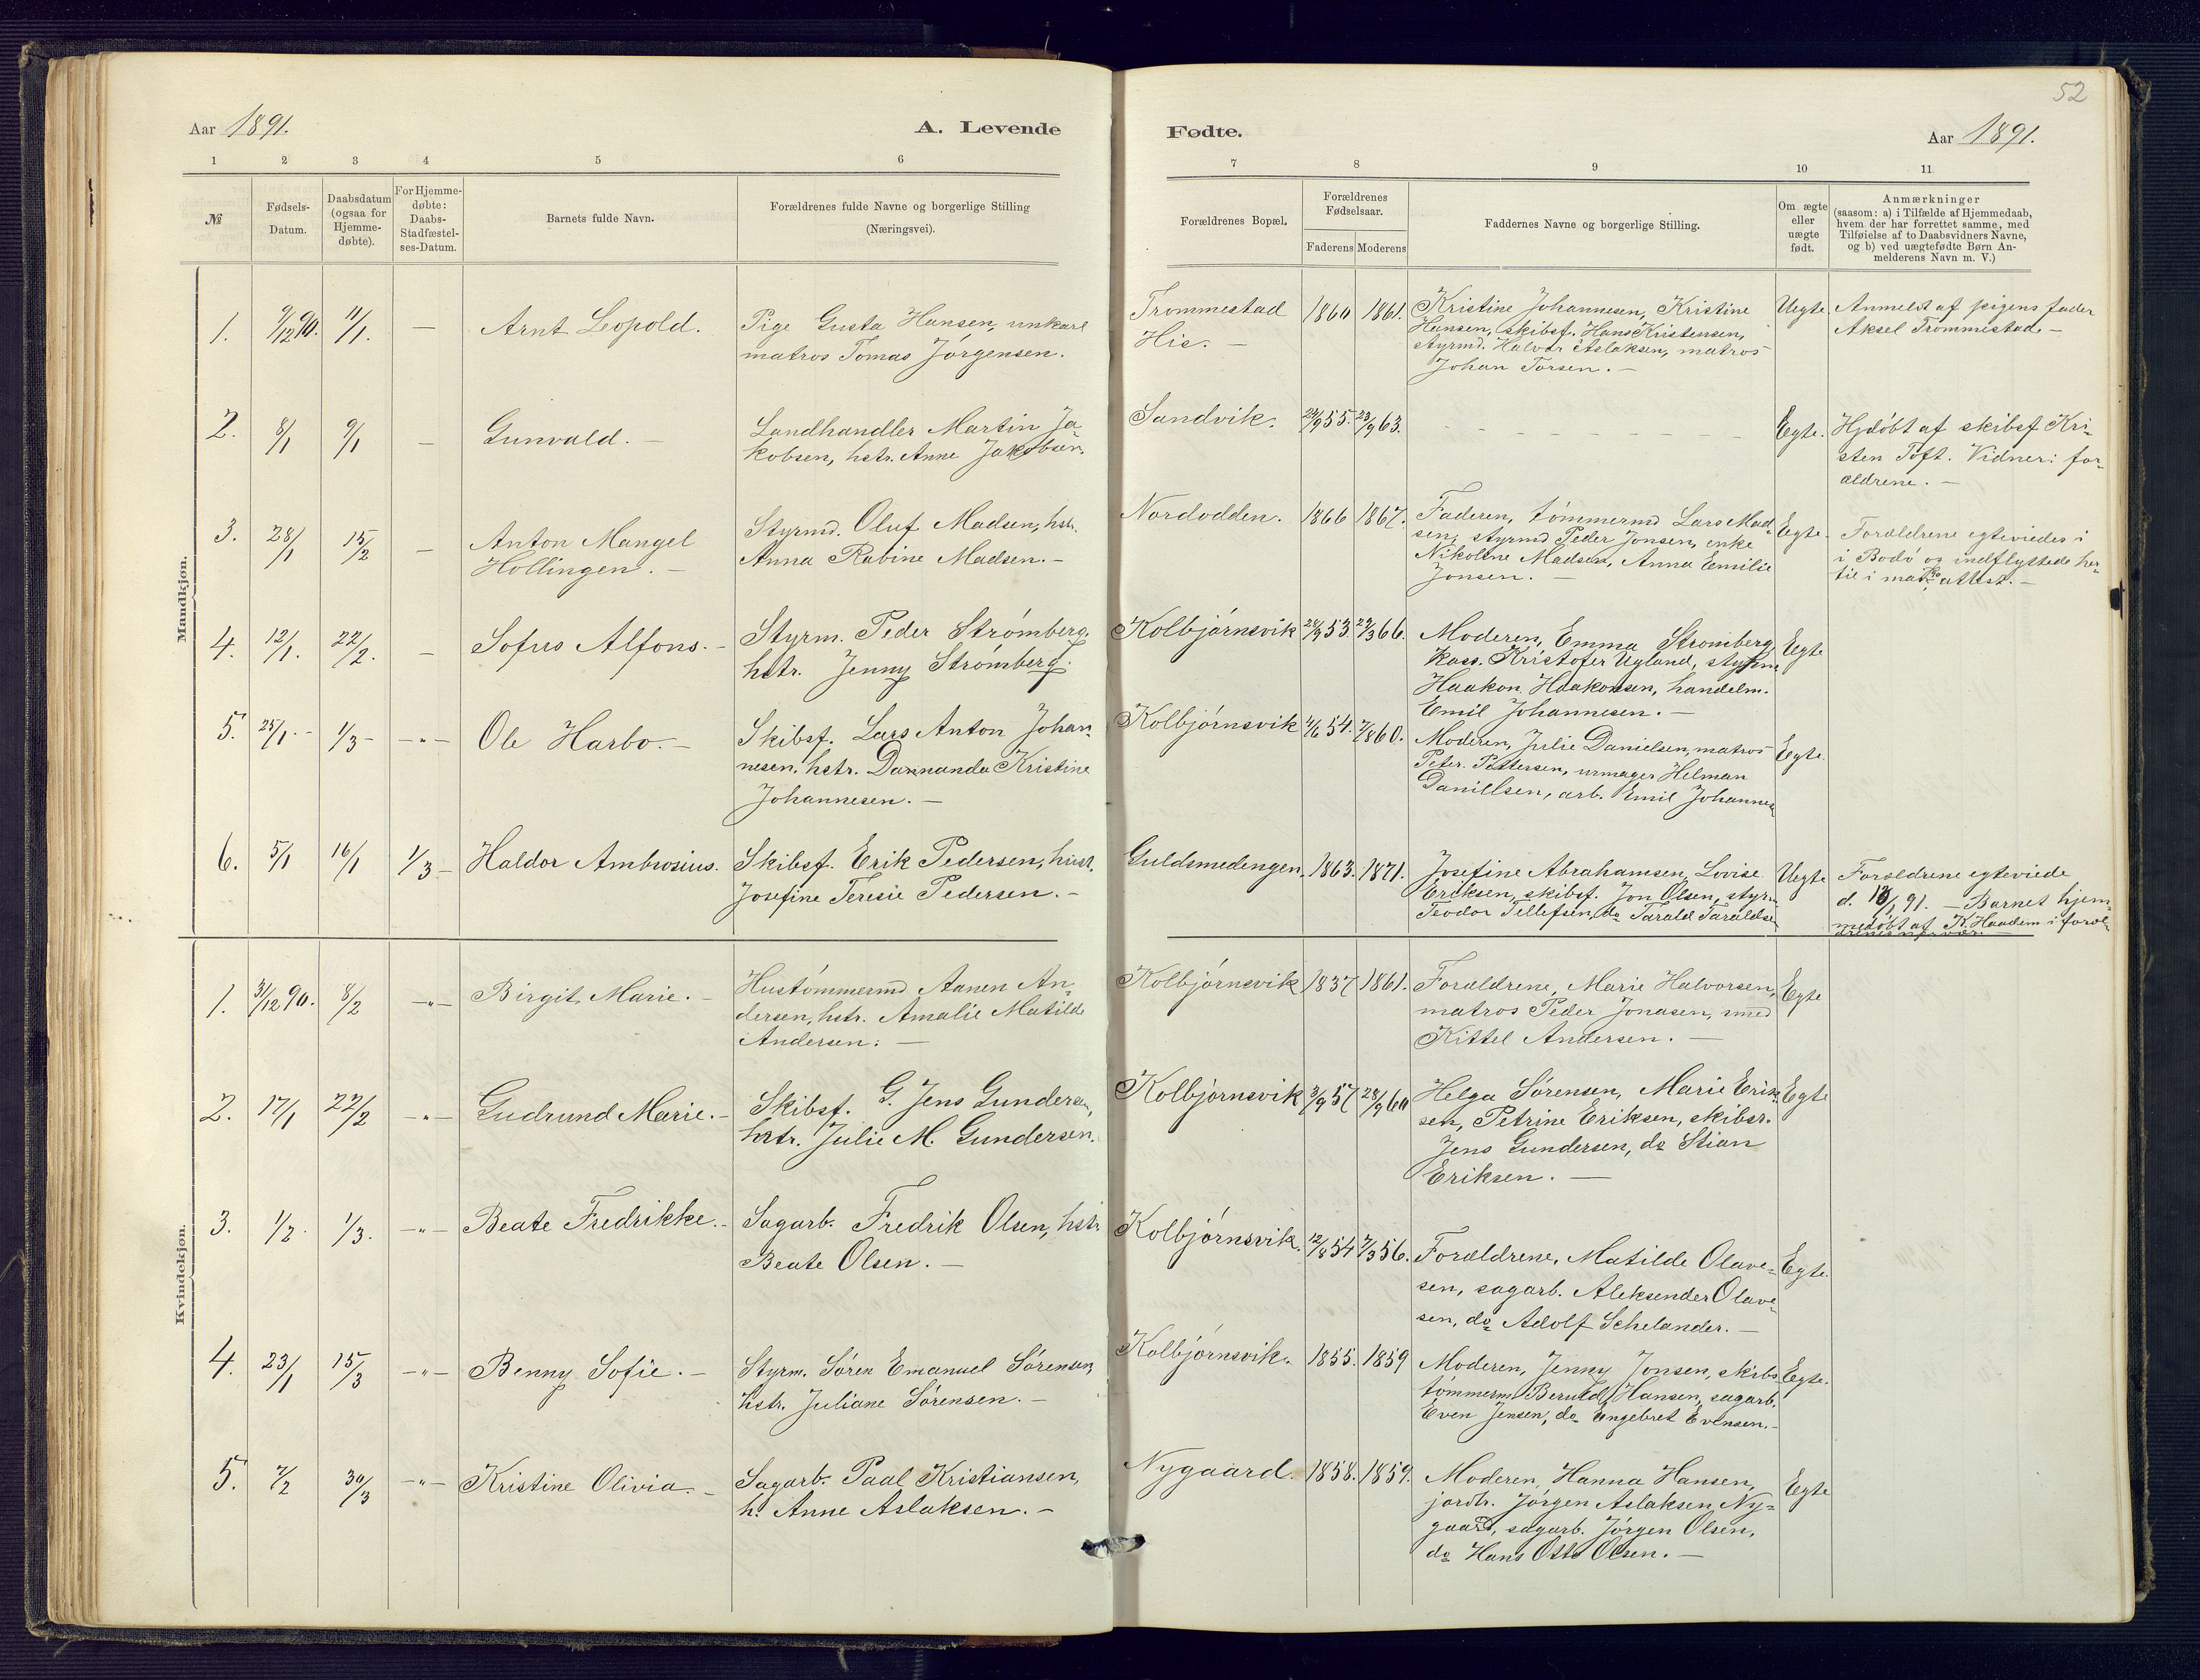 52
Aar 1891.
A. Levende
Fødte.
Aar 1891.
1 2 3 4 5 6
7 8 9 10 11
№
Fødsels-
Datum.
Daabsdatum
(ogsaa for
Hjemme-
døbte).
For Hjemme-
døbte:
Daabs-
Stadfæstel-
ses-Datum.
Barnets fulde Navn.
Forældrenes fulde Navne og borgerlige Stilling
(Næringsvei).
Forældrenes Bopæl.
Forældrenes
Fødselsaar.
Faderens Moderens
Faddernes Navne og borgerlige Stilling.
Om ægte
eller
uægte
født.
Anmærkninger
(saasom: a) i Tilfælde af Hjemmedaab,
hvem der har forrettet samme, med
Tilføielse af to Daabsvidners Navne,
og b) ved uægtefødte Børn An-
melderens Navn m. V.)
Mandkjøn.
1. 9/12 90. 11/1. — Arnt Leopold.
Pige Gusta Hansen, unkarl
matros Tomas Jörgensen.
Trommestad
His. —
1860 1861.
Kristine Johannesen, Kristine
Hansen, skibsf. Hans Kristensen,
styrmd. Halvor Aslaksen, matros
Johan Torsen. —
Uegte.
Anmeldt af pigens fader
Aksel Trommestad. —
2. 8/1 9/1 — Gunvald. —
Landhandler Martin Ja-
kobsen, hstr. Anne Jakobsen.
Sandvik.
24/9 55. 23/9 63.
Egte.
Hjdöbt af skibsf Kri-
sten Toft. Vidner: for-
ældrene. —
3. 28/1 15/2 — Anton Mangel
Hollingen. —
Styrmd. Oluf Madsen, hstr.
Anna Rabine Madsen. —
Nordodden.
1866 1867.
Faderen, tömmermd Lars Mad-
sen, styrmd Peder Jonsen, enke
Nikoline Madsen, Anna Emilie
Jonsen. —
Egte.
Forældrene egteviedes i
i Bodö og indflyttede her-
til i attest. —
4. 12/1. 22/2. — Sofus Alfons. —
Styrm. Peder Strömberg,
hstr. Jenny Strömberg.
Kolbjörnsvik
53. 66.
Moderen, Emma Stromberg,
kass. Kristofer Ugland, styrm
Haakon Haakonsen, handelm.
Emil Johannesen. —
Egte
5. 25/1. — 1/3 — —"— Ole Harbo. —
Skibsf. Lars Anton Johan-
nesen, hstr. Dannanda Kristine
Johannesen. —
Kolbjörnsvik
4/6 54. 7/8 60.
Moderen, Julie Danielsen, matros
Peter Pettersen, urmager Helman
Danillsen, arb. Emil Johannes
Egte.
6. 5/1 16/1 1/3 — Haldor Ambrosius.
Skibsf. Erik Pedersen, hust.
Josefine Teresie Pedersen. —
Guldsmedengen.
1863. 1871.
Josefine Abrahamsen, Lovise
Eriksen, skibsf. Jon Olsen, styr-
Teodor Tellefsen, do Tarald Taraldse
Uegte
Forældrene egteviede
d. 91. — Barnet hjem-
medöbt af K. Haadem i foræl-
drenes nærvær.
Kvindekjøn.
1. 31/12 90. 8/2 —"— Birgit Marie. —
Hustömmermd Aanen An-
dersen, hstr. Amalie Matilde
Andersen. —
Kolbjörnsvik
1837 1861.
Forældrene, Marie Halvorsen,
matros Peder Jonasen,
Kittel Andersen. —
Egte
2. 17/1 22/2 —"— Gudrund Marie. —
Skibsf. G. Jens Gundersen,
hstr. Julie M. Gundersen.
Kolbjörnsvik
3/9 57 28/9 60
Helga Sörensen, Marie Erik-
sen, Petrine Eriksen, skibsr.
Jens Gundersen, do Stian
Eriksen. —
Egte
3. 1/2 1/3. —"— Beate Fredrikke. —
Sagarb. Fredrik Olsen, hstr
Beate Olsen. —
Kolbjörnsvik.
12/8 54 7/3 56.
Forældrene, Matilde Olave-
sen, sagarb. Aleksender Olave-
sen, do Adolf Schelander. —
Egte.
4. 23/1 15/3 —"— Benny Sofie. —
Styrm. Sören Emanuel Sörensen,
hstr. Juliane Sörensen. —
Kolbjörnsvik.
1855. 1859
Moderen, Jenny Jonsen, skibs
tömmerm. Hansen, sagarb.
Even Jensen, do Engebret Evensen. —
Egte.
5. 7/2 30/3 —"— Kristine Olivia. —
Sagarb. Paal Kristiansen,
h. Anne Aslaksen. —
Nygaard.
1858. 1859.
Moderen, Hanna Hansen,
jordbr. Jörgen Aslaksen Ny-
gaard, sagarb. Jörgen Olsen,
do Hans Otto Olsen. —
Egte